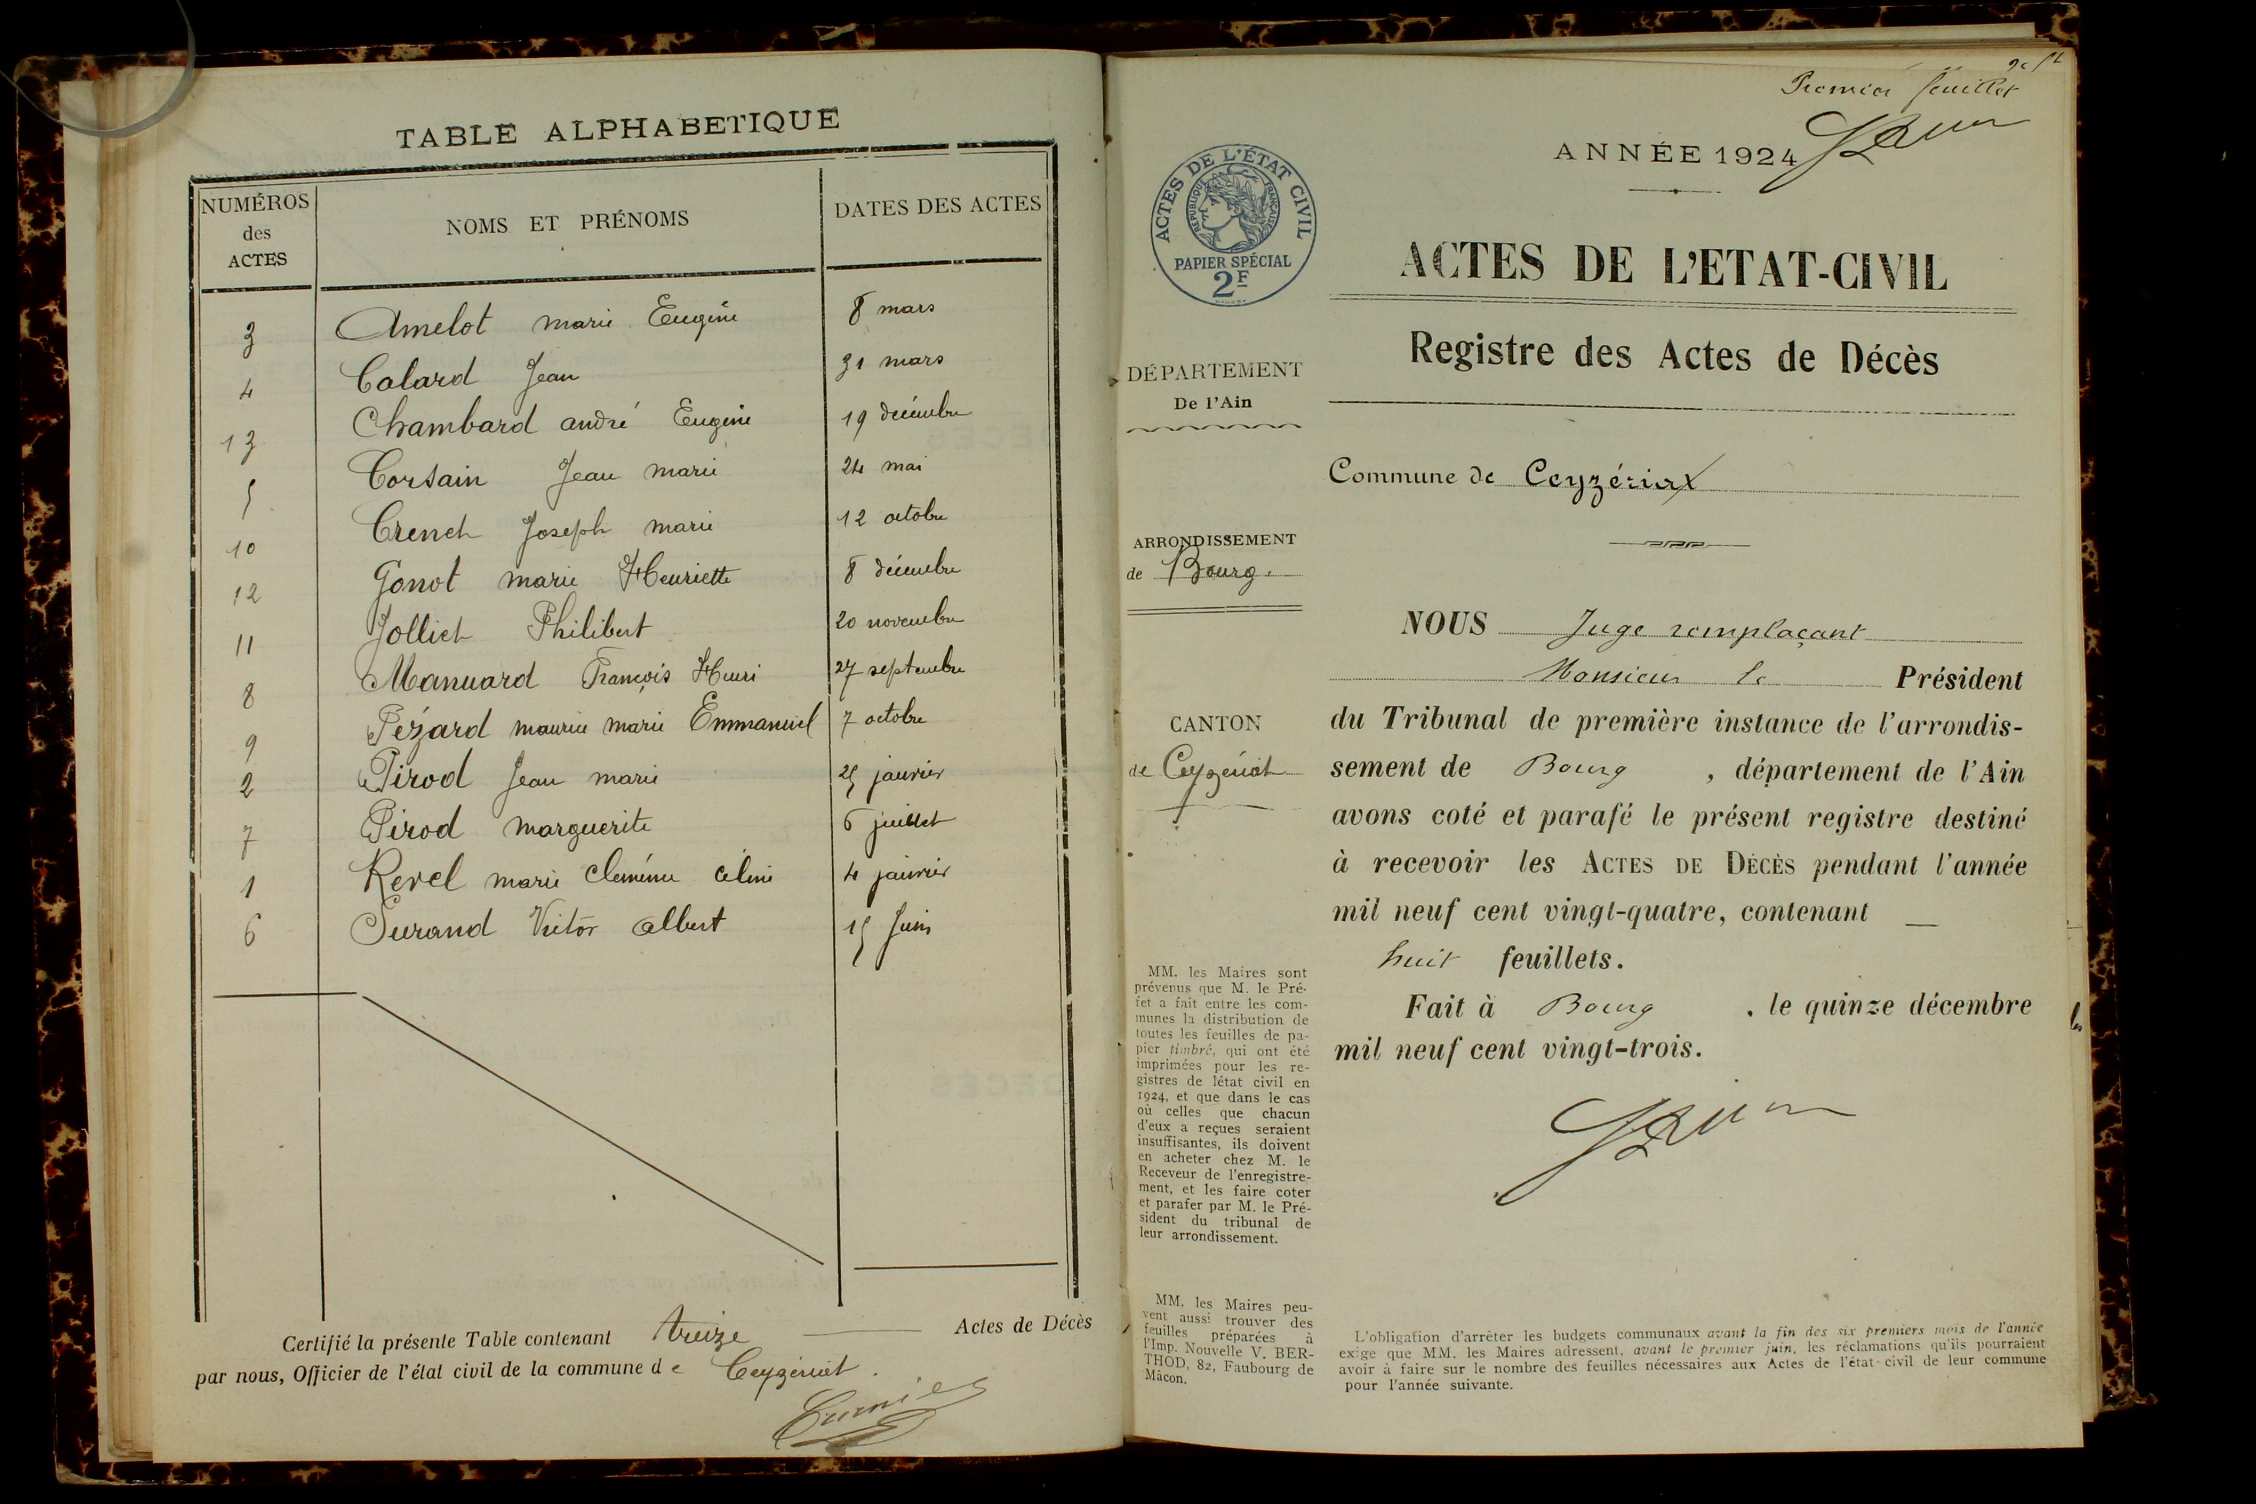 TABLE ALPHABETIQUE
NUMÉROS des ACTES
NOMS ET PRÉNOMS
DATES DES ACTES
3 Amelot marie Eugénie 8 mars
4 Calard Jean 31 mars
13 Chambard andré Eugénie 19 décembre
5 Corsain Jean marie 24 mai
10 Crench Joseph marie 12 octobre
12 Gonot marie Henriette 8 décembre
11 Jolliet Philibert 20 novembre
8 Manuard François Henri 27 septembre
9 Pézard maurice marie Emmanuel 7 octobre
2 Pirod Jean marie 25 janvier
7 Pirod marguerite 6 juillet
1 Revel marie céline 4 janvier
6 Surand Victor albert 15 Juin
Certifié la présente Table contenant treize Actes de Décès
par nous, Officier de l'état civil de la commune de Ceyzériat.
Premier feuillet
ANNÉE 1924
ACTES DE L'ÉTAT CIVIL
RÉPUBLIQUE FRANÇAISE
PAPIER SPÉCIAL
2F
ACTES DE L'ETAT-CIVIL
Registre des Actes de Décès
DÉPARTEMENT
De l'Ain
Commune de Ceyzériat
ARRONDISSEMENT
de Bourg.
CANTON
de Ceyzériat
NOUS Juge remplaçant
Monsieur le Président
du Tribunal de première instance de l'arrondis-
sement de Bourg, département de l'Ain
avons coté et parafé le présent registre destiné
à recevoir les ACTES DE DÉCÈS pendant l'année
mil neuf cent vingt-quatre, contenant
huit feuillets.
Fait à Bourg. le quinze décembre
mil neuf cent vingt-trois.
MM. les Maires sont
prévenus que M. le Pré-
fet a fait entre les com-
munes la distribution de
toutes les feuilles de pa-
pier timbré, qui ont été
imprimées pour les re-
gistres de létat civil en
1924, et que dans le cas
où celles que chacun
d'eux a reçues seraient
insuffisantes, ils doivent
en acheter chez M. le
Receveur de l'enregistre-
ment, et les faire coter
et parafer par M. le Pré-
sident du tribunal de
leur arrondissement.
MM. les Maires peu-
vent aussi trouver des
feuilles préparées à
l'Imp. Nouvelle V. BER-
THOD, 82, Faubourg de
Mâcon.
L'obligation d'arrêter les budgets communaux avant la fin des six premiers mois de l'année
exige que MM. les Maires adressent, avant le premier juin, les réclamations qu'ils pourraient
avoir à faire sur le nombre des feuilles nécessaires aux Actes de l'état-civil de leur commune
pour l'année suivante.